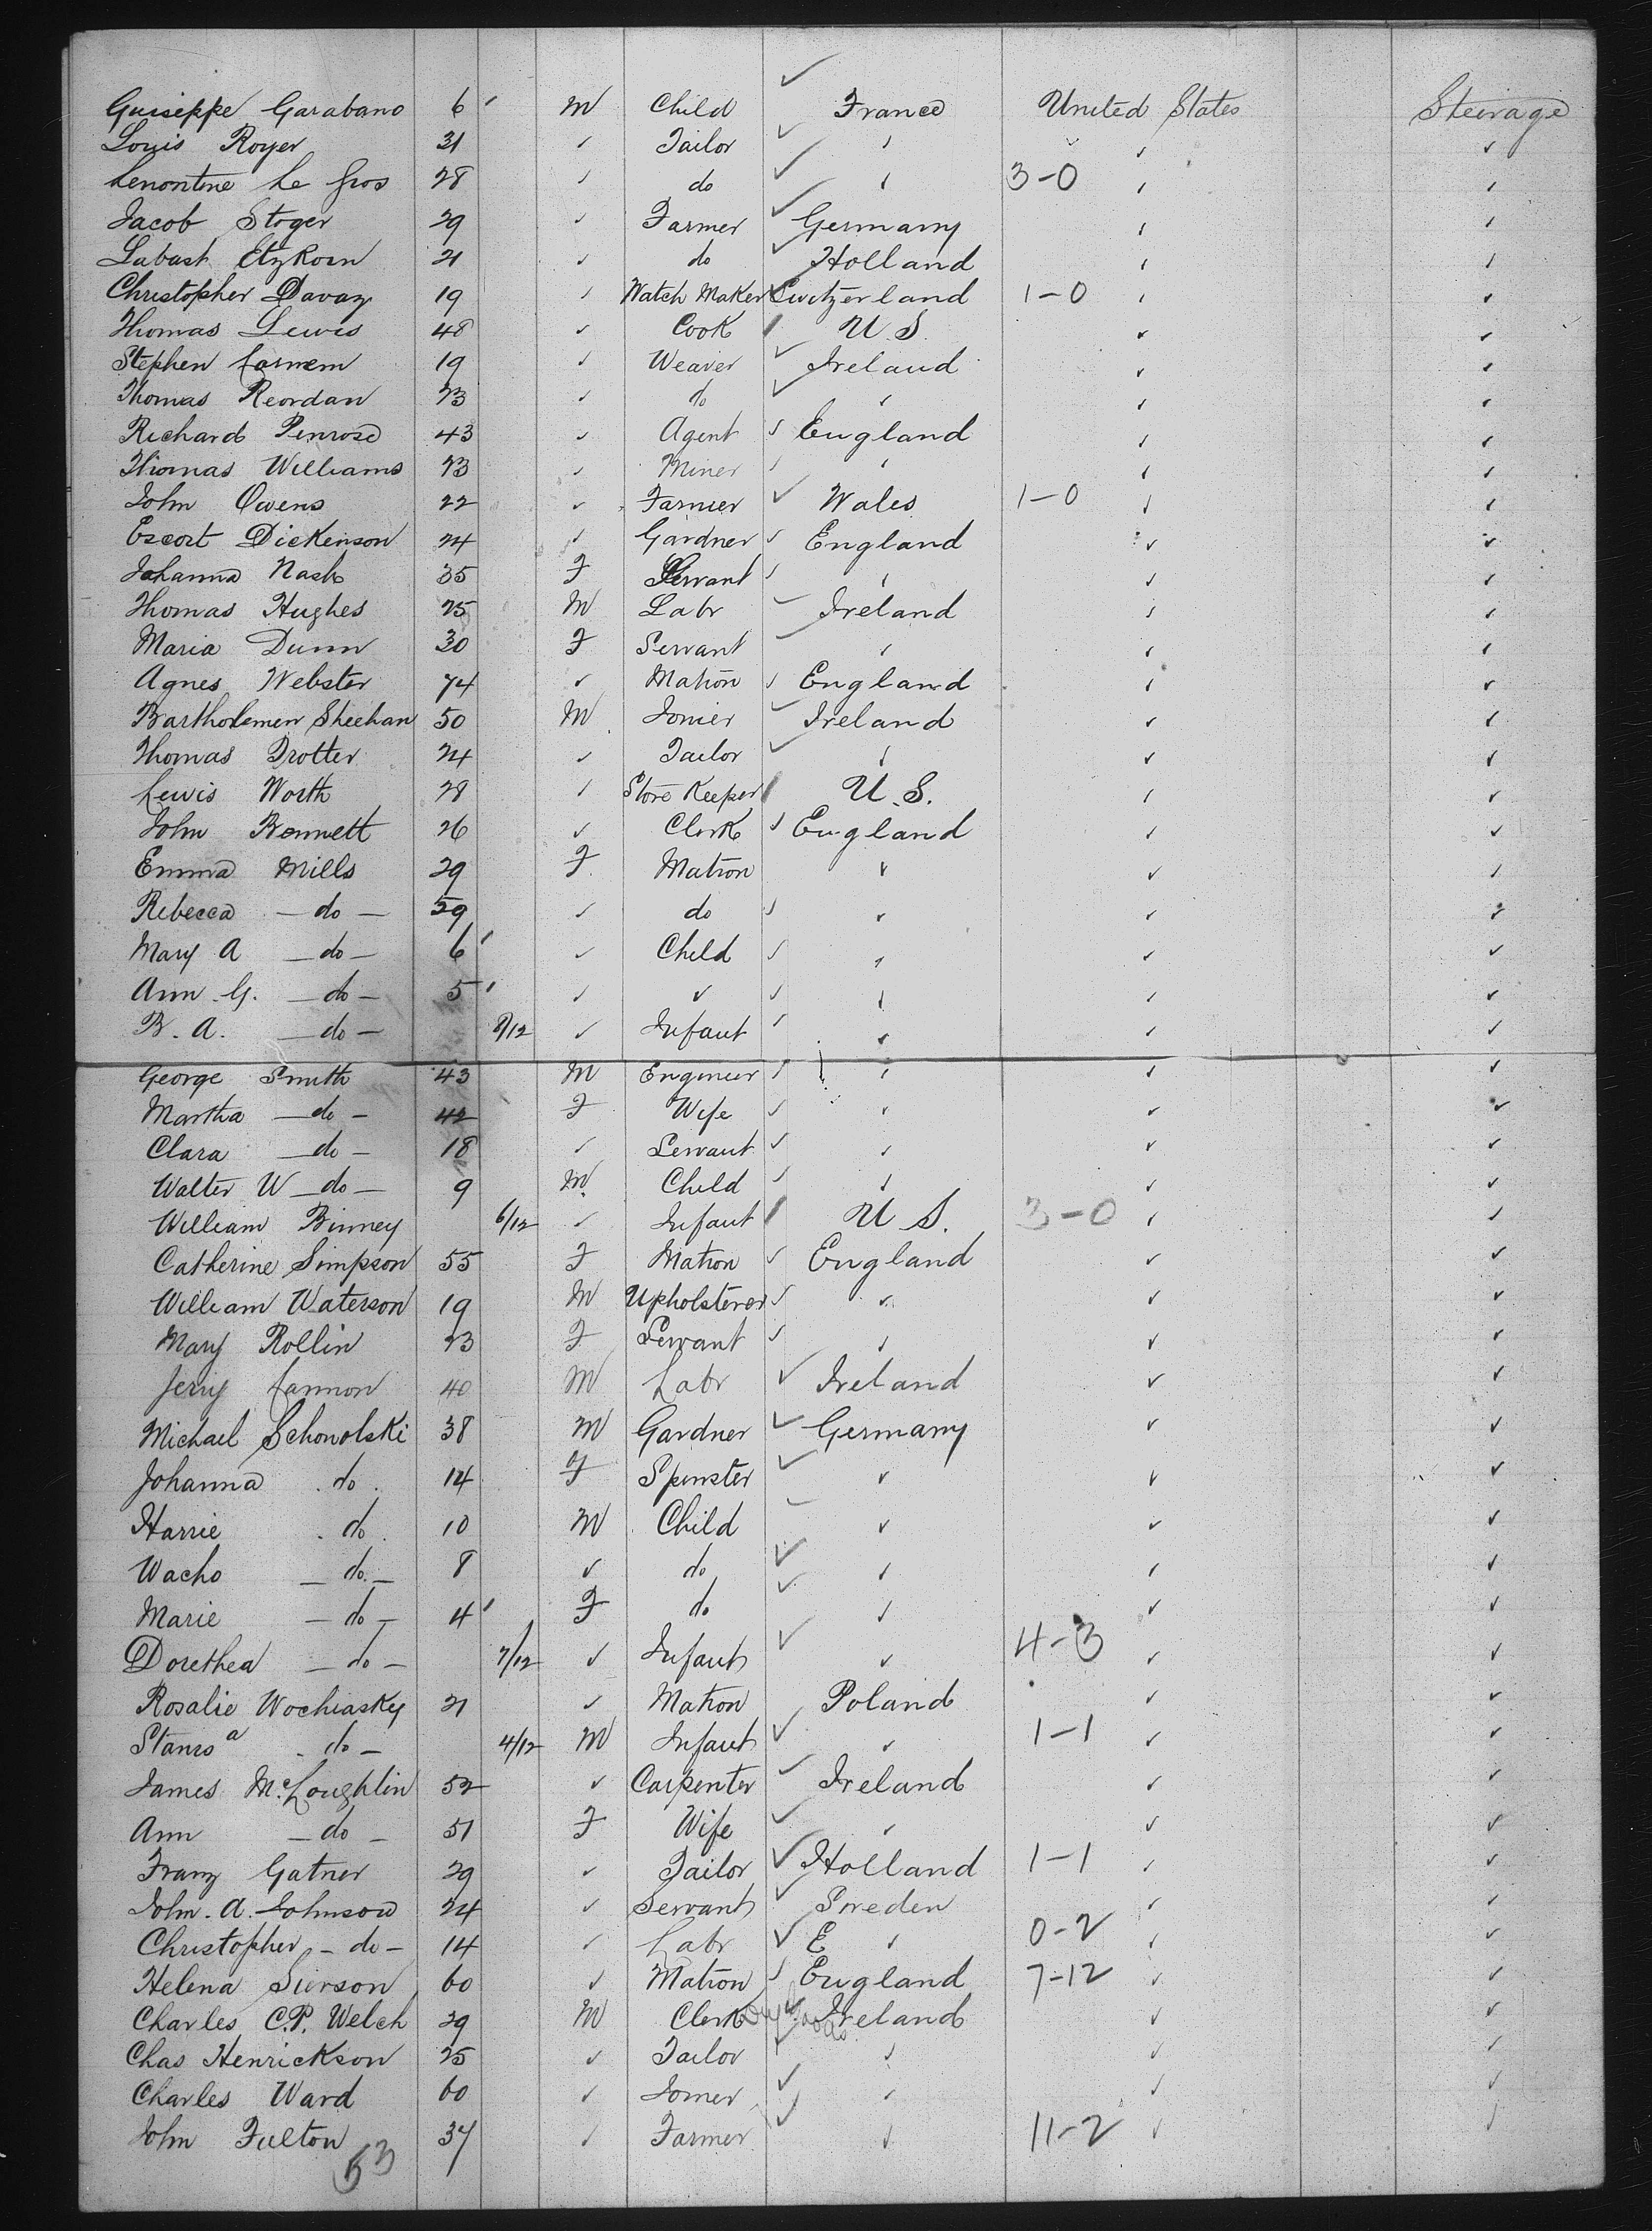 Guiseppe Garabano 6 ' M Child ✓ France United States Steerage
Louis Royer 31 ✓ Tailor ✓ ✓ ✓ ✓
Lenontine Le Gros 28 ✓ do ✓ ✓ 3-0 ✓ ✓
Jacob Stoger 29 ✓ Farmer ✓ Germany ✓ ✓
Labast Etzkorn 21 ✓ do ✓ Holland ✓ ✓
Christopher Davaz 19 ✓ Watch Maker ✓ Switzerland 1-0 ✓ ✓
Thomas Lewis 48 ✓ Cook / U.S. ✓ ✓
Stephen Carnem 19 ✓ Weaver ✓ Ireland ✓ ✓
Thomas Reordan 23 ✓ do ✓ ✓ ✓ ✓
Richard Penrose 43 ✓ Agent ✓ England ✓ ✓
Thomas Williams 23 ✓ Miner ✓ ✓ ✓ ✓
John Owens 22 ✓ Farmer ✓ Wales 1-0 ✓ ✓
Escort Dickenson 24 ✓ Gardner ✓ England ✓ ✓
Johanna Nash 35 F Servant ✓ ✓ ✓ ✓
Thomas Hughes 25 M Labr ✓ Ireland ✓ ✓
Maria Dunn 30 F Servant ✓ ✓ ✓ ✓
Agnes Webster 74 ✓ Matron ✓ England ✓ ✓
Bartholemen Sheehan 50 M Jonier ✓ Ireland ✓ ✓
Thomas Trotter 24 ✓ Tailor ✓ ✓ ✓ ✓
Lewis Worth 28 ✓ Store Keeper / U.S. ✓ ✓
John Bennett 26 ✓ Clerk ✓ England ✓ ✓
Emma Mills 29 F. Matron ✓ ✓ ✓
Rebecca — do — 59 ✓ do ✓ ✓ ✓ ✓
Mary A — do — 6 ' ✓ Child ✓ ✓ ✓ ✓
Ann. G. — do — 5 ' ✓ ✓ ✓ ✓ ✓ ✓
B. A. — do — 9/12 ✓ Infant ✓ ✓ ✓ ✓
George Smith 43 M Engineer ✓ ✓ ✓ ✓
Martha — do — 42 F Wife ✓ ✓ ✓ ✓
Clara — do — 18 ✓ Servant ✓ ✓ ✓ ✓
Walter W — do — 9 M Child ✓ ✓ ✓ ✓
William Binney 6/12 ✓ Infant / U S. 3-0 ✓ ✓
Catherine Simpson 55 F Matron ✓ England ✓ ✓
William Waterson 19 M Upholsterer ✓ ✓ ✓ ✓
Mary Rollin 23 F Servant ✓ ✓ ✓ ✓
Jerry Cannon 40 M Labr ✓ Ireland ✓ ✓
Michael Schonolski 38 M Gardner ✓ Germany ✓ ✓
Johanna do 14 F Spinster ✓ ✓ ✓ ✓
Harrie do 10 M Child ✓ ✓ ✓ ✓
Wacho — do — 8 ✓ do ✓ ✓ ✓ ✓
Marie — do — 4 ' F do ✓ ✓ ✓ ✓
Dorethea — do — 7/12 ✓ Infant ✓ ✓ 4-3 ✓ ✓
Rosalie Wochiasky 21 ✓ Matron Poland ✓ ✓
Stanisª do — 4/12 M Infant ✓ ✓ 1-1 ✓ ✓
James McLoughlin 52 ✓ Carpenter ✓ Ireland ✓ ✓
Ann — do — 51 F Wife ✓ ✓ ✓ ✓
Franz Gatner 29 ✓ Tailor ✓ Holland 1-1 ✓ ✓
John. A. Johnson 24 ✓ Servant ✓ Sweden ✓ ✓
Christopher — do — 14 ✓ Labr ✓ E ✓ 0-2 ✓ ✓
Helena Sierson 60 ✓ Matron ✓ England 7-12 ✓ ✓
Charles C.P. Welch 29 M Clerk Dry Goods ✓ Ireland ✓ ✓
Chas Henrickson 25 ✓ Tailor ✓ ✓ ✓ ✓
Charles Ward 60 ✓ Joiner ✓ ✓ ✓ ✓
John Fulton 37 ✓ Farmer ✓ ✓ 11-2 ✓ ✓
53